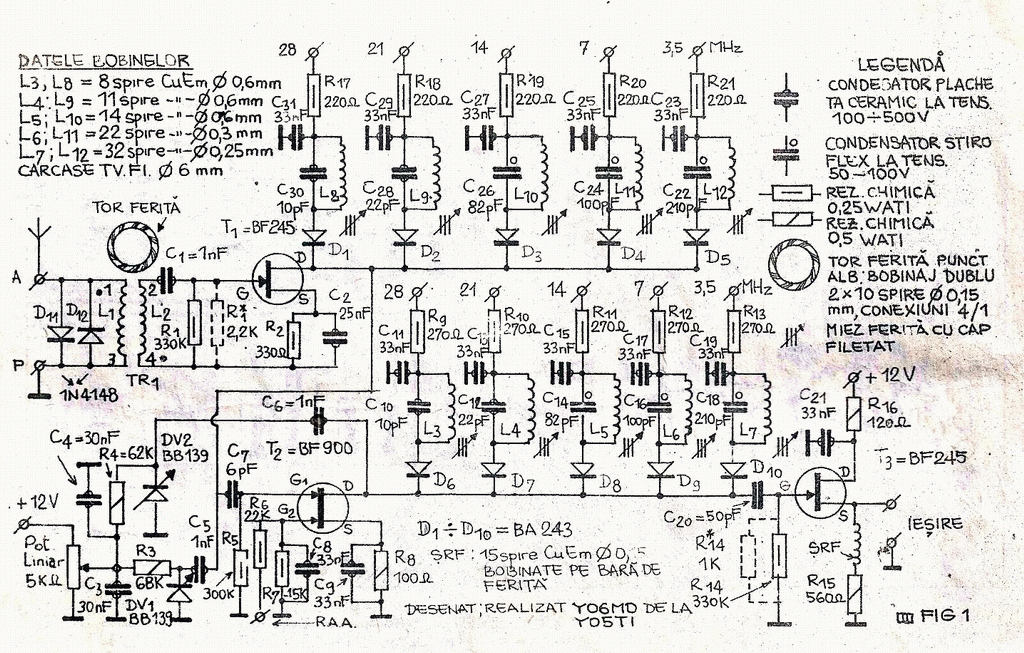 DATELE BOBINELOR
L3, L8 = 8 spire CuEm Ø 0,6mm
L4; L9 = 11 spire -"- Ø 0,6mm
L5; L10 = 14 spire -"- Ø 0,6 mm
L6; L11 = 22 spire -"- Ø 0,3 mm
L7; L12 = 32 spire -"- Ø 0,25mm
CARCASE TV.FI. Ø 6 mm
28 21 14 7 3,5 MHz
R17 220Ω
R18 220Ω
R19 220Ω
R20 220Ω
R21 220Ω
C31 33nF
C29 33nF
C27 33nF
C25 33nF
C23 33nF
C30 10pF L8
C28 22pF L9
C26 82pF L10
C24 100pF L11
C22 210pF L12
D1 D2 D3 D4 D5
LEGENDĂ
CONDESATOR PLACHE
TA CERAMIC LA TENS.
100÷500V
CONDENSATOR STIRO
FLEX LA TENS.
50-100V
REZ. CHIMICĂ
0,25WATI
REZ. CHIMICĂ
0,5 WATI
TOR FERITĂ PUNCT
ALB: BOBINAJ DUBLU
2×10 SPIRE Ø 0,15
mm, CONEXIUNI 4/1
MIEZ FERITĂ CU CAP
FILETAT
TOR FERITĂ
T1=BF245
C1=1nF
A
D11 D12
1 L1 2 L2
3 4
R1 330K
R* 2,2K
G D S
R2 330Ω
C2 25nF
P
1N4148
TR1
28 21 14 7 3,5 MHz
R9 270Ω
R10 270Ω
R11 270Ω
R12 270Ω
R13 270Ω
C11 33nF
33nF
C15 33nF
C17 33nF
C19 33nF
C10 10pF L3
C12 22pF L4
C14 82pF L5
C16 100pF L6
C18 210pF L7
D6 D7 D8 D9 D10
+12V
C21 33nF
R16 120Ω
T3=BF245
G D S
C6=1nF
T2=BF900
C4=30nF
R4=62K
DV2 BB139
C7 6pF
G1 G2 D S
+12V
Pot. Liniar 5KΩ
C3 30nF
R3 68K
C5 1nF
DV1 BB139
R5 300K
R6 22K
R7 15K
C8 33nF
C9 33nF
R8 100Ω
R.A.A.
D1÷D10 = BA 243
ȘRF: 15spire CuEm Ø 0,5
BOBINATE PE BARĂ DE
FERITĂ
C20=50pF
R*14 1K
R14 330K
IEȘIRE
ȘRF
R15 560Ω
DESENAT; REALIZAT YO6MD DE LA
YO5TI
FIG 1